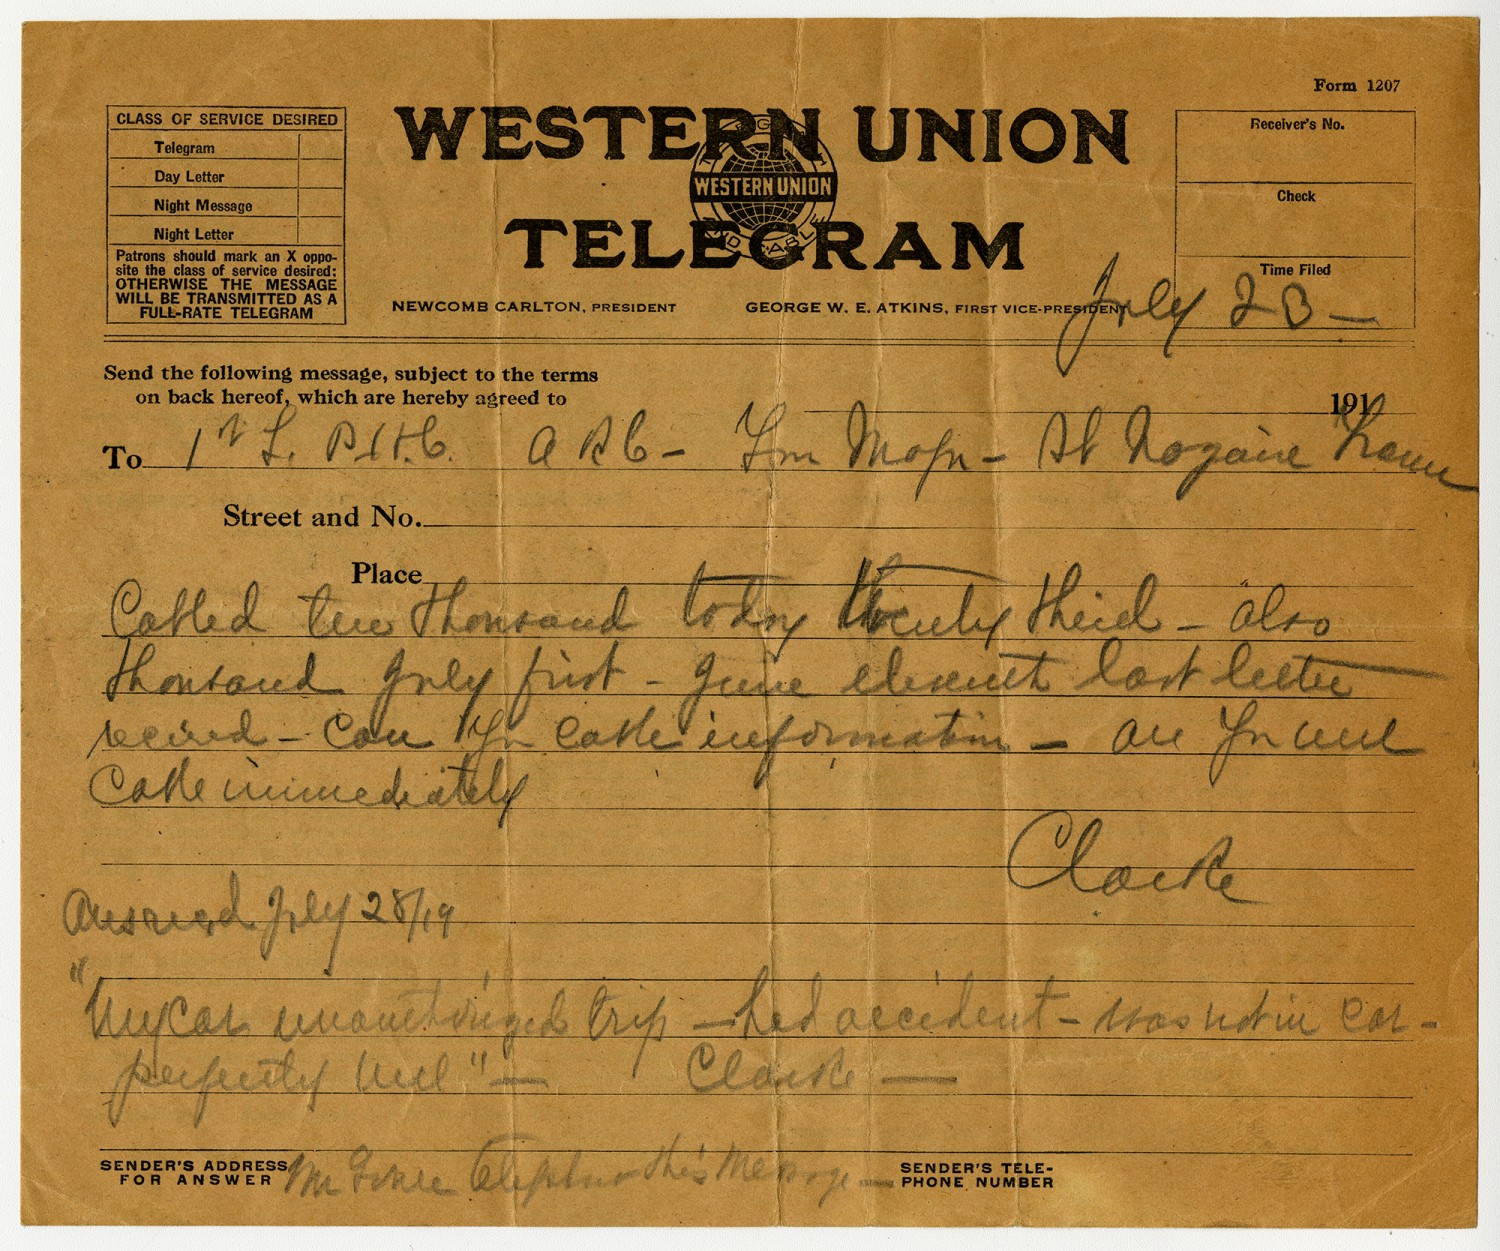 Form 1207
CLASS OF SERVICE DESIRED
Telegram
Day Letter
Night Message
Night Letter
Patrons should mark an X oppo-
site the class of service desired:
OTHERWISE THE MESSAGE
WILL BE TRANSMITTED AS A
FULL-RATE TELEGRAM
WESTERN UNION
WESTERN UNION
TELEGRAM
NEWCOMB CARLTON, PRESIDENT
GEORGE W. E. ATKINS, FIRST VICE-PRESIDENT
Receiver's No.
Check
Time Filed
July 23 —
Send the following message, subject to the terms
on back hereof, which are hereby agreed to
191
To 1st L. A R C - St Nazaire France
Street and No.
Place
Cabled ten thousand today twenty third - also
thousand July first - June eleventh last letter
recived - Can you cable information - are you well
Cable immediately
Clarke
Answered July 28/19
"My Car trip - had accident - was not in car -
perfectly well" - Clarke —
SENDER'S ADDRESS
FOR ANSWER
this message -
SENDER'S TELE-
PHONE NUMBER